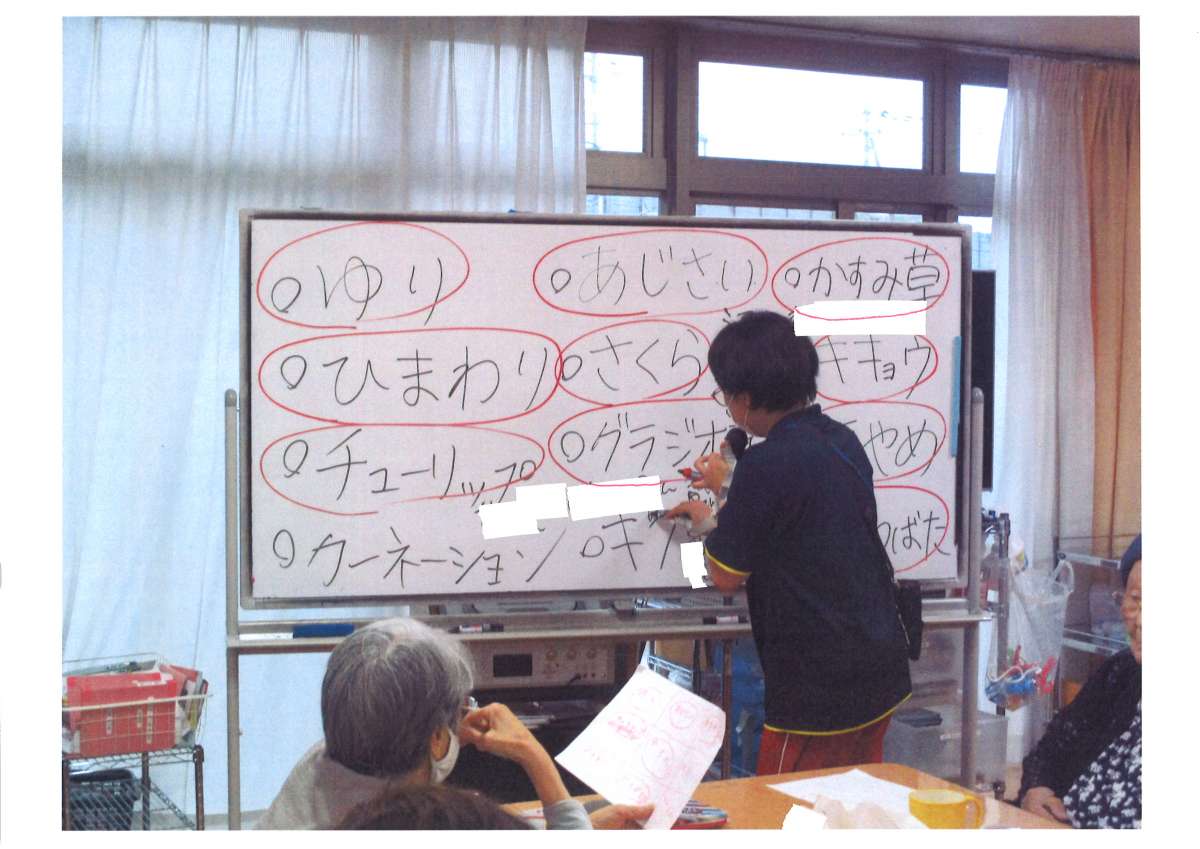 ○ゆり ○あじさい ○かすみ草
○ひまわり ○さくら キキョウ
○チューリップ ○グラジオ やめ
○カーネーション ○キ ばた